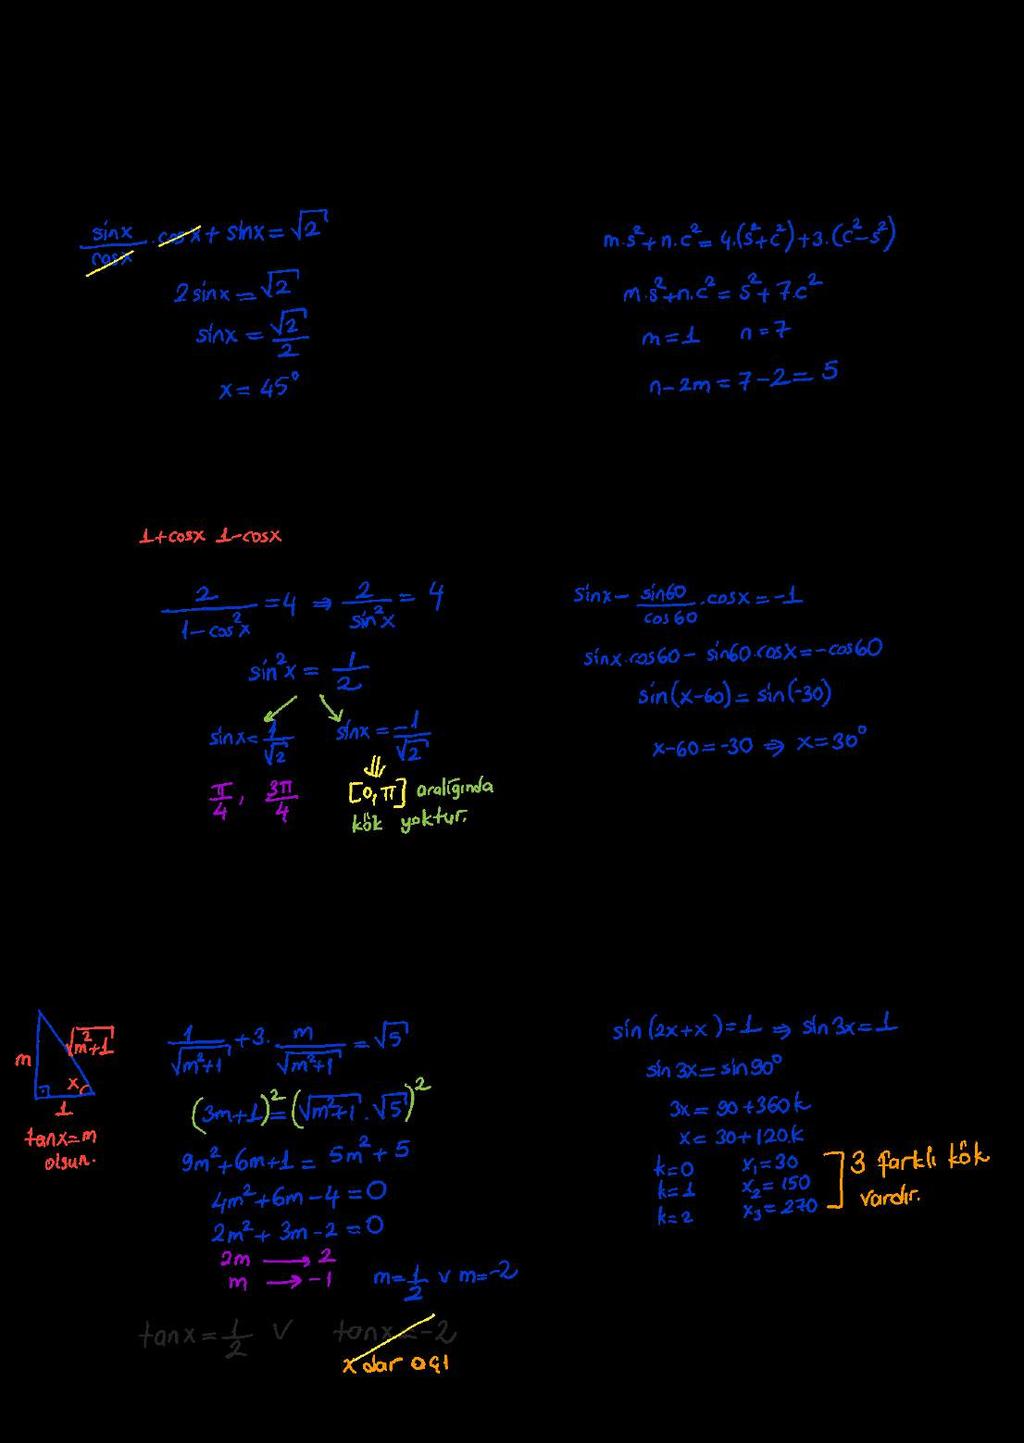 sinx/cosx . cosx + sinx = √2
2 sinx = √2
sinx = √2/2
x = 45°
m.s²+n.c² = 4.(s²+c²)+3.(c²-s²)
m.s²+n.c² = s²+7.c²
m=1 n=7
n-2m = 7-2 = 5
1+cosx 1-cosx
2/(1-cos²x) = 4 ⇒ 2/sin²x = 4
sin²x = 1/2
sinx = 1/√2 sinx = -1/√2
π/4, 3π/4 [0,π] aralığında
kök yoktur.
sinx - sin60/cos60 . cosx = -1
sinx.cos60 - sin60.cosx = -cos60
sin(x-60) = sin(-30)
x-60 = -30 ⇒ x = 30°
m √m²+1
x
1
tanx=m
olsun.
1/√m²+1 + 3. m/√m²+1 = √5
(3m+1)² = (√m²+1 . √5)²
9m²+6m+1 = 5m²+5
4m²+6m-4 = 0
2m²+3m-2 = 0
2m → 2
m → -1 m = 1/2 ∨ m = -2
tanx = 1/2 ∨ tanx = -2
x dar açı
sin(2x+x) = 1 ⇒ sin3x = 1
sin3x = sin90°
3x = 90+360k
x = 30+120k
k=0 x₁=30
k=1 x₂=150
k=2 x₃=270
3 farklı kök
vardır.